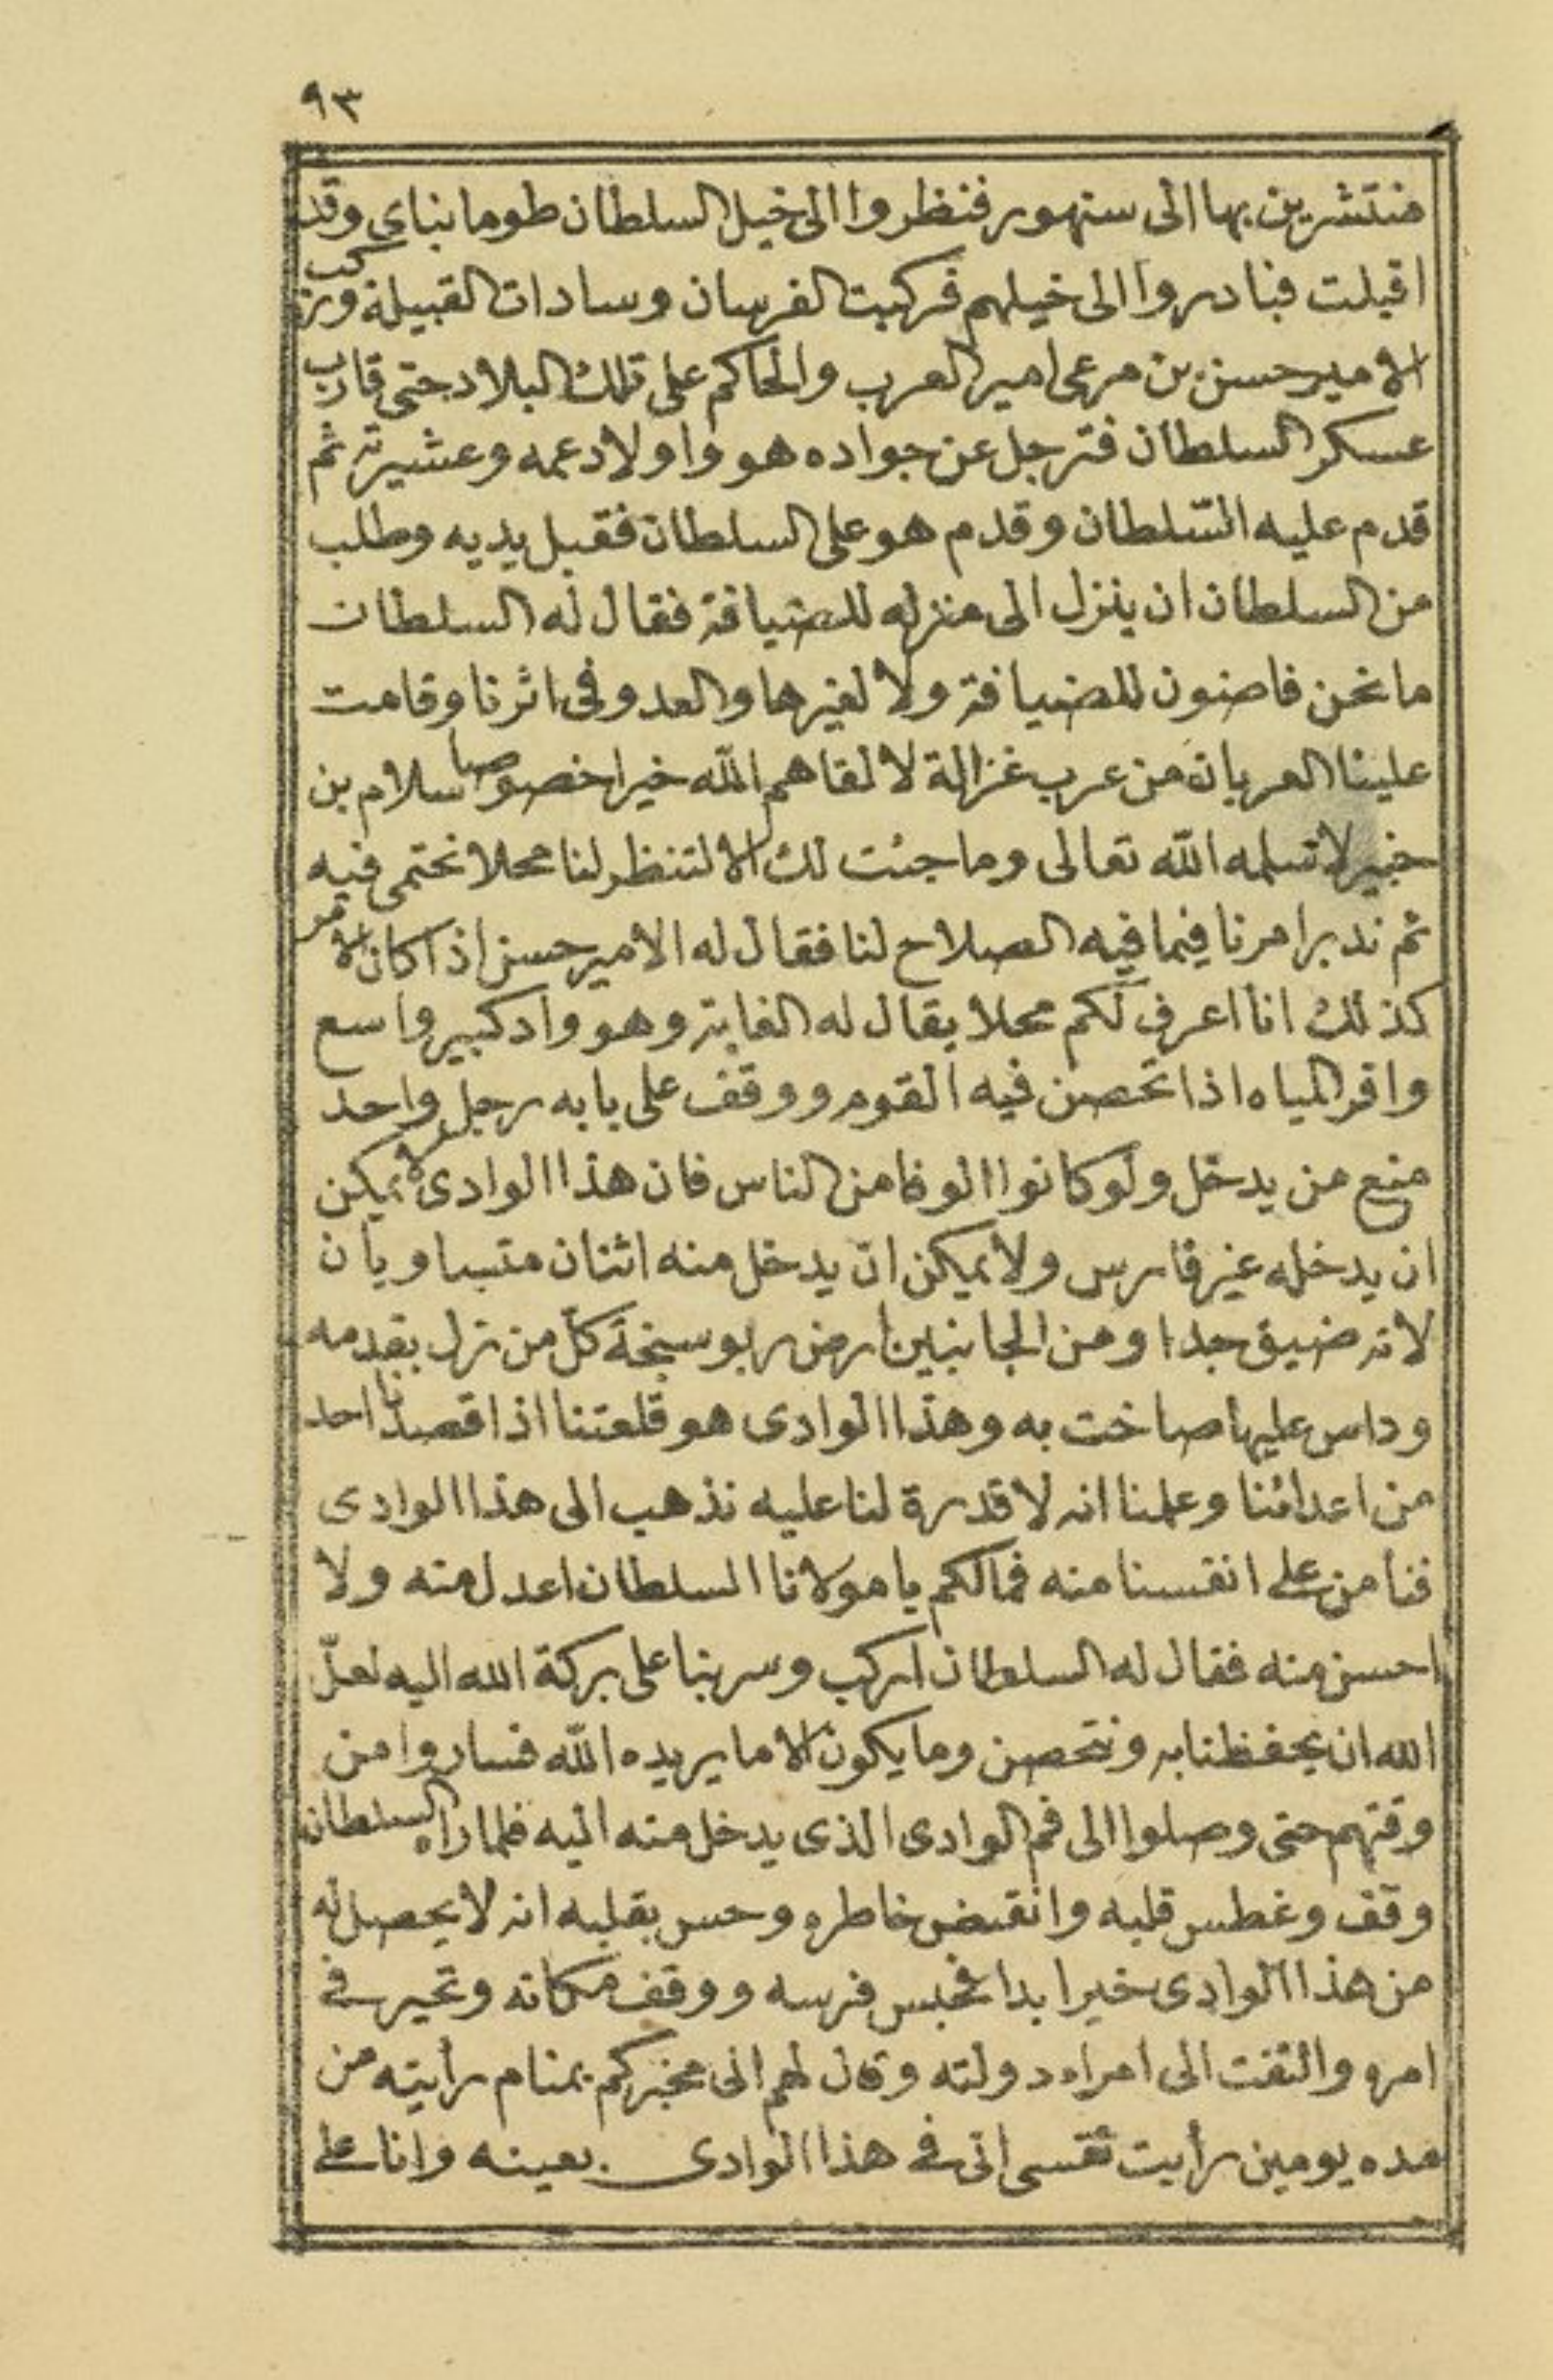 ٩٣
منتشرين بها الى سنهور فنظروا الى خيل السلطان طومانباى وقد
اقبلت فبادروا الى خيلهم فركبت الفرسان وسادات القبيلة وركب
الامير حسن بن مرعى امير العرب والحاكم على تلك البلاد حتى قارب
عسكر السلطان فترجل عن جواده هو واولاد عمه وعشيرته ثم
قدم عليه السّلطان وقدم هو على السلطان فقبل يديه وطلب
من السلطان ان ينزل الى منزله للضيافة فقال له السلطان
ما نحن فاضون للضيافة ولا لغيرها والعدو فى اثرنا وقامت
علينا العربان من عرب غزالة لا لقاهم الله خيرا خصوصا سلام بن
خبير لا تسلمه الله تعالى وما جئت لك الا لتنظر لنا محلا نحتمى فيه
ثم ندبر امرنا فيما فيه الصلاح لنا فقال له الامير حسن اذا كان الامر
كذلك انا اعرف لكم محلا يقال له الغابة وهو واد كبير واسع
وافر المياه اذا تحصن فيه القوم ووقف على بابه رجل واحد
منع من يدخل ولو كانوا الوفا من الناس فان هذا الوادى لا يمكن
ان يدخله غير فارس ولا يمكن انّ يدخل منه اثنان متساويان
لانه ضيق جدا ومن الجانبين ارض ربو سبخة كلّ من نزل بقدمه
وداس عليها صاخت به وهذا الوادى هو قلعتنا اذا قصدنا احد
من اعدائنا وعلمنا انه لا قدرة لنا عليه نذهب الى هذا الوادى
فنأمن على انفسنا منه فمالكم يا مولانا السلطان اعدل منه ولا
احسن منه فقال له السلطان اركب وسر بنا على بركة الله اليه لعلّ
الله ان يحفظنا به ونتحصن وما يكون الا ما يريده الله فساروا من
وقتهم حتى وصلوا الى فم الوادى الذى يدخل منه اليه فلما راه السلطان
وقف وغطس قلبه وانقبض خاطره وحس بقلبه انه لا يحصل له
من هذا الوادى خير ابدا فحبس فرسه ووقف مكانه وتحير فى
امره والتفت الى امراء دولته وقال لهم انى مخبركم بمنام رأيته من
مده يومين رأيت نفسى انى فى هذا الوادى بعينه وانا على